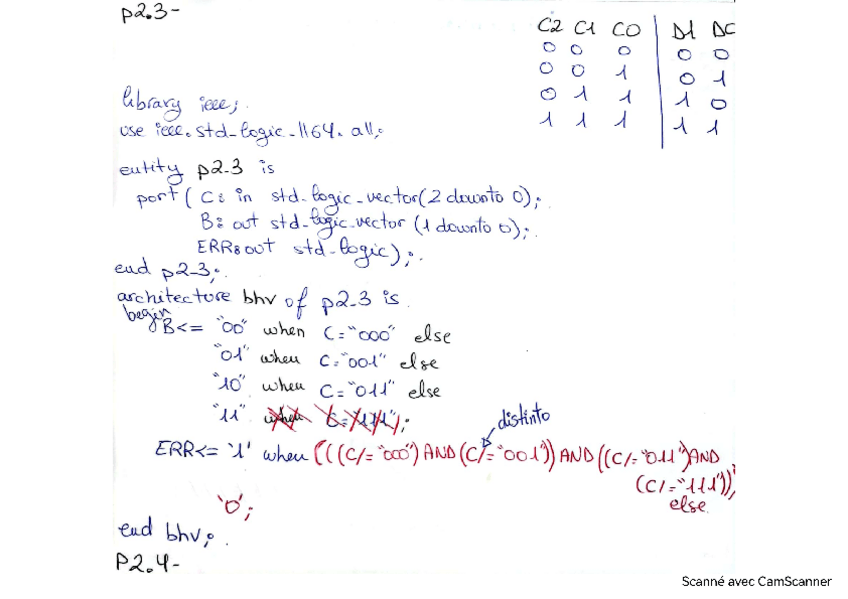 P2.3-
C2 C1 C0 D1 D0
0 0 0 0 0
0 0 1 0 1
0 1 1 1 0
1 1 1 1 1
library ieee;
use ieee.std_logic_1164.all;
entity p2_3 is
port( C: in std_logic_vector(2 downto 0);
B: out std_logic_vector (1 downto 0);
ERR: out std_logic);
end p2_3;
architecture bhv of p2_3 is
begin
B<= "00" when C="000" else
"01" when C="001" else
"10" when C="011" else
"11" when C="111");
distinto
ERR<= '1' when (((C/="000") AND (C/="001")) AND ((C/="011") AND
(C/="111"))
else
'0';
end bhv;
P2.4-
Scanné avec CamScanner